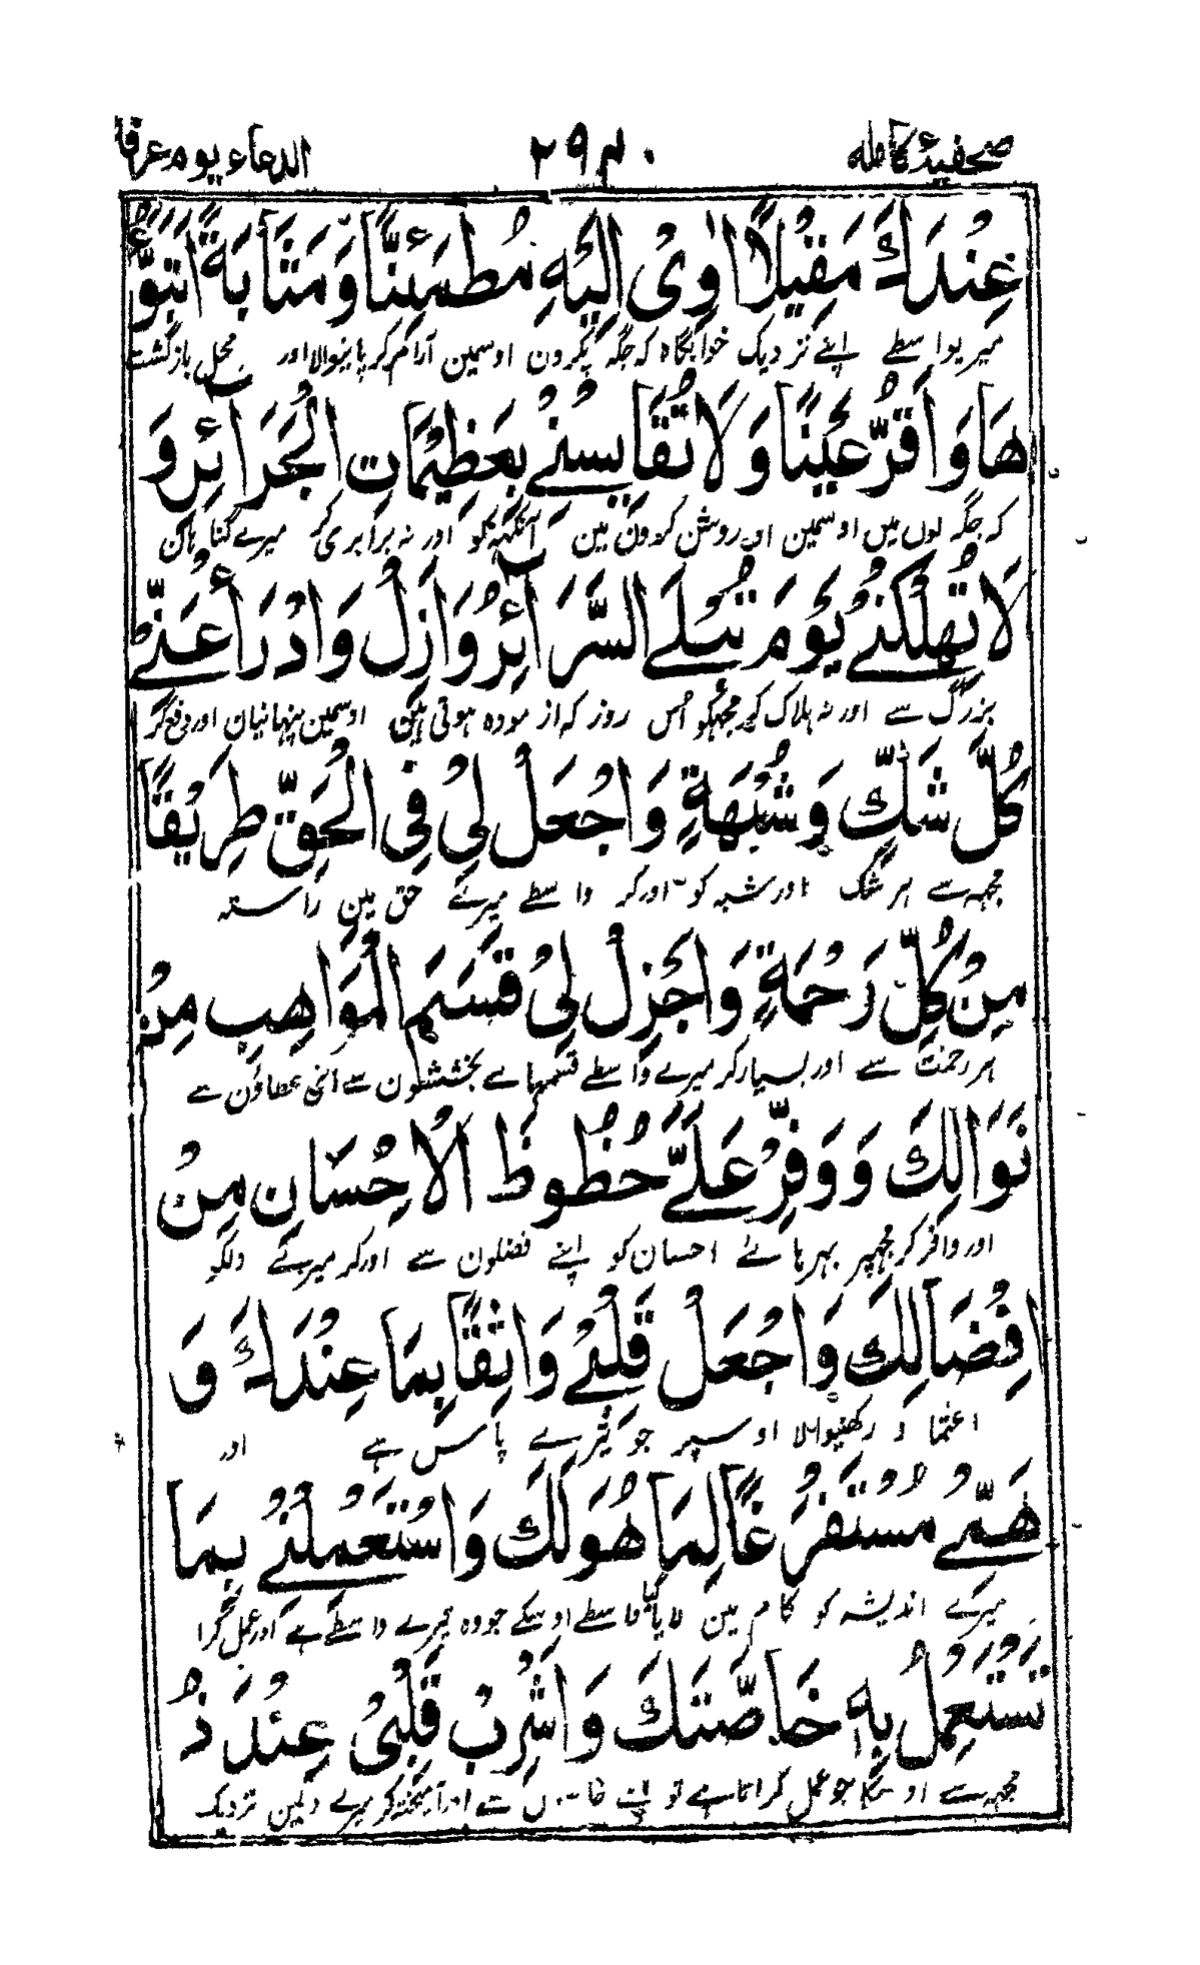 صحیفۂ کاملہ ۲۹۴ الدعاء یوم عرفة
عِنْدَكَ مَقِيْلًا اٰوِيْ اِلَيْهِ مُطْمَئِنًّا وَّمَثَابَةً اَتَبَوَّءُ
میرے واسطے اپنے نزدیک خوابگاہ کہ جگہ پکڑون اوسمین آرام کر پانیوالا اور محل بازگشت
هَا وَاَقَرُّ عَيْنًا وَلَا تُقَايِسْنِيْ بِعَظِيْمَاتِ الْجَرَآئِرِ وَ
کہ جگہ لوں میں اوسمین اور روشن کرون مین آنکھ کو اور نہ برابری کر میرے گناہان
لَا تُهْلِكْنِيْ يَوْمَ تُبْلَى السَّرَآئِرُ وَاَزِلْ وَادْرَأْ عَنِّيْ
بزرگ سے اور نہ ہلاک کر مجہکو اُس روز کہ آزمودہ ہوتی ہین اوسمین پنہانیان اور دفع کر
كُلَّ شَكٍّ وَّشُبْهَةٍ وَاجْعَلْ لِيْ فِي الْحَقِّ طَرِيْقًا
مجہہ سے ہر شک اور شبہ کو اور کر واسطے میرے حق مین راستہ
مِنْ كُلِّ رَحْمَةٍ وَاَجْزِلْ لِيْ قَسَمَ الْمَوَاهِبِ مِنْ
ہر رحمت سے اور بسیار کر میرے واسطے قسمہاے بخششون سے اپنی عطاؤن سے
نَوَالِكَ وَوَفِّرْ عَلَيَّ حُظُوظَ الْاِحْسَانِ مِنْ
اور وافر کر مجہپر بہرہائے احسان کو اپنے فضلون سے اور کر میرے دلکو
اِفْضَالِكَ وَاجْعَلْ قَلْبِيْ وَاثِقًا بِمَا عِنْدَكَ وَ
اعتماد رکھنیوالا اوسپر جو تیرے پاس ہے اور
هَمِّيْ مُسْتَفْرَغًا لِمَا هُوَ لَكَ وَاسْتَعْمِلْنِيْ بِمَا
میرے اندیشہ کو کام مین لایا گیا واسطے اوسکے جو وہ تیرے واسطے ہے اور عمل کرا
تَسْتَعْمِلُ بِهٖ خَاصَّتَكَ وَاَشْرِبْ قَلْبِيْ عِنْدَ ذُ
مجہہ سے جو عمل کراتا ہے تو اپنے سے اور کر میرے دلمین نزدیک